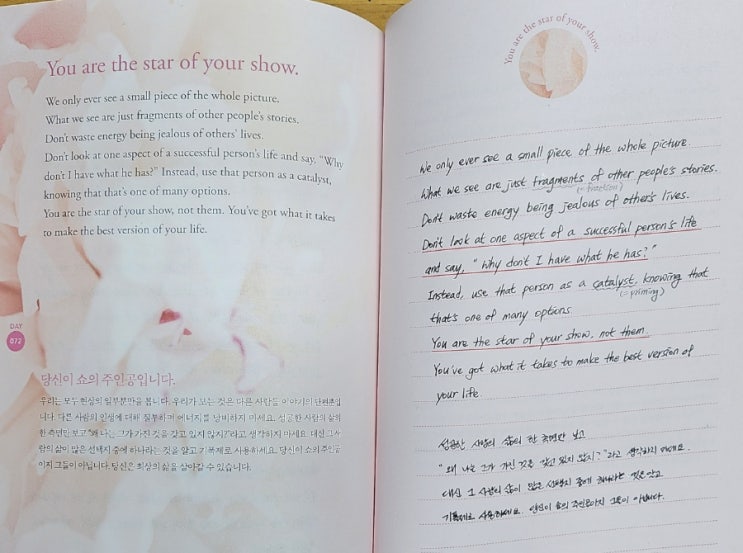 You are the star of your show.
We only ever see a small piece of the whole picture.
What we see are just fragments of other people's stories.
Don't waste energy being jealous of others' lives.
Don't look at one aspect of a successful person's life and say, "Why
don't I have what he has?" Instead, use that person as a catalyst,
knowing that that's one of many options.
You are the star of your show, not them. You've got what it takes
to make the best version of your life.
DAY
072
당신이 쇼의 주인공입니다.
우리는 모두 현상의 일부분만을 봅니다. 우리가 보는 것은 다른 사람들 이야기의 단편뿐입
니다. 다른 사람의 인생에 대해 질투하며 에너지를 낭비하지 마세요. 성공한 사람의 삶의
한 측면만 보고 "왜 나는 그가 가진 것을 갖고 있지 않지?"라고 생각하지 마세요. 대신 그 사
람의 삶이 많은 선택지 중에 하나라는 것을 알고 기폭제로 사용하세요. 당신이 쇼의 주인공
이지 그들이 아닙니다. 당신은 최상의 삶을 살아갈 수 있습니다.
You are the star of your show.
We only ever see a small piece of the whole picture.
What we see are just fragments of other people's stories.
(= fraction)
Don't waste energy being jealous of other's lives.
Don't look at one aspect of a successful person's life
and say, "Why don't I have what he has?"
Instead, use that person as a catalyst, knowing that
(= priming)
that's one of many options.
You are the star of your show, not them.
You've got what it takes to make the best version of
your life.
성공한 사람의 삶의 한 측면만 보고
"왜 나는 그가 가진 것을 갖고 있지 않지?"라고 생각하지 마세요.
대신 그 사람의 삶이 많은 선택지 중에 하나라는 것을 알고
기폭제로 사용하세요. 당신이 쇼의 주인공이지 그들이 아닙니다.